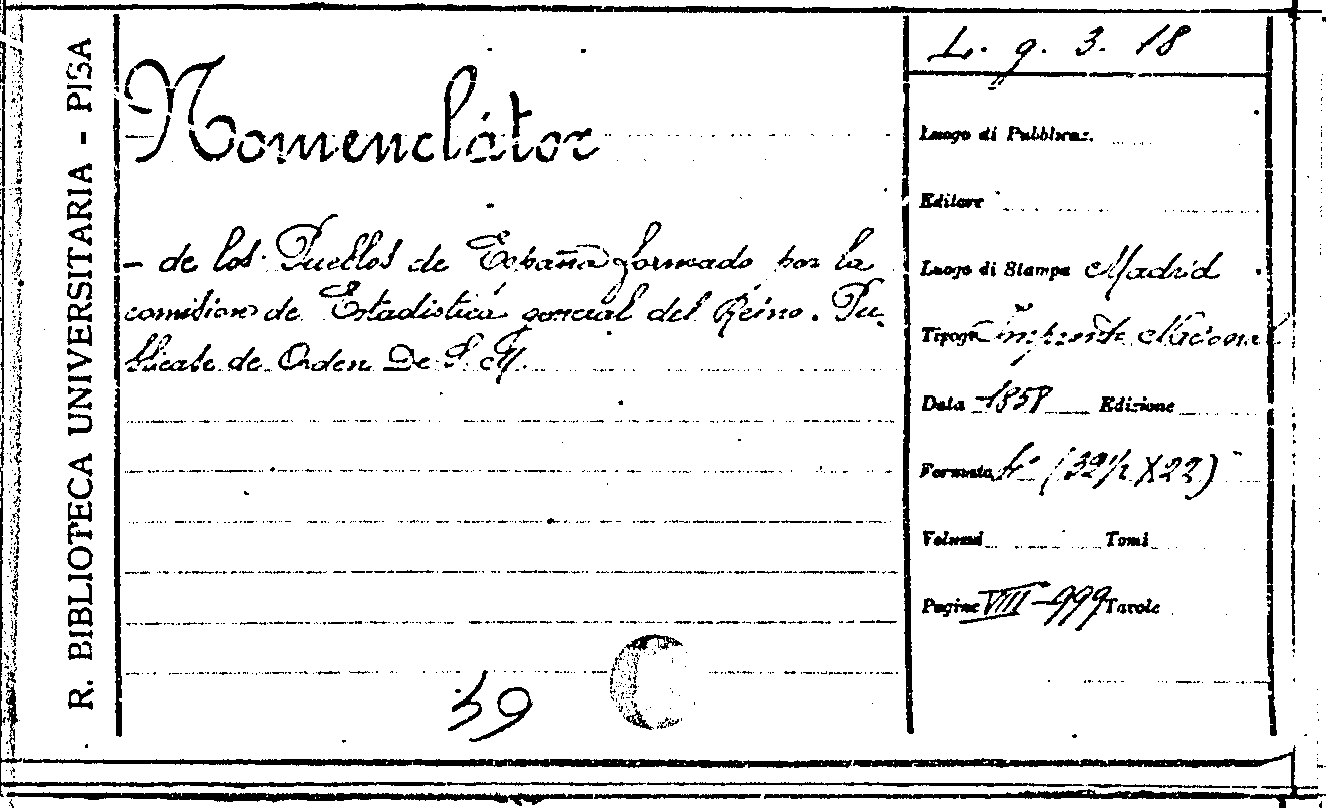 R. BIBLIOTECA UNIVERSITARIA - PISA
L. g. 3. 18
Nomenclátor
- de los Pueblos de España formado por la
comision de Estadistica general del Reino. Pu-
blicase de Orden De S. M.
Luogo di Pubblicaz.
Editore
Luogo di Stampa Madrid
Tipogr. Imprenta Nacional
Data 1858 Edizione
Formato 4° (32½ X 22)
Volumi Tomi
Pagine VIII-999 Tavole
39